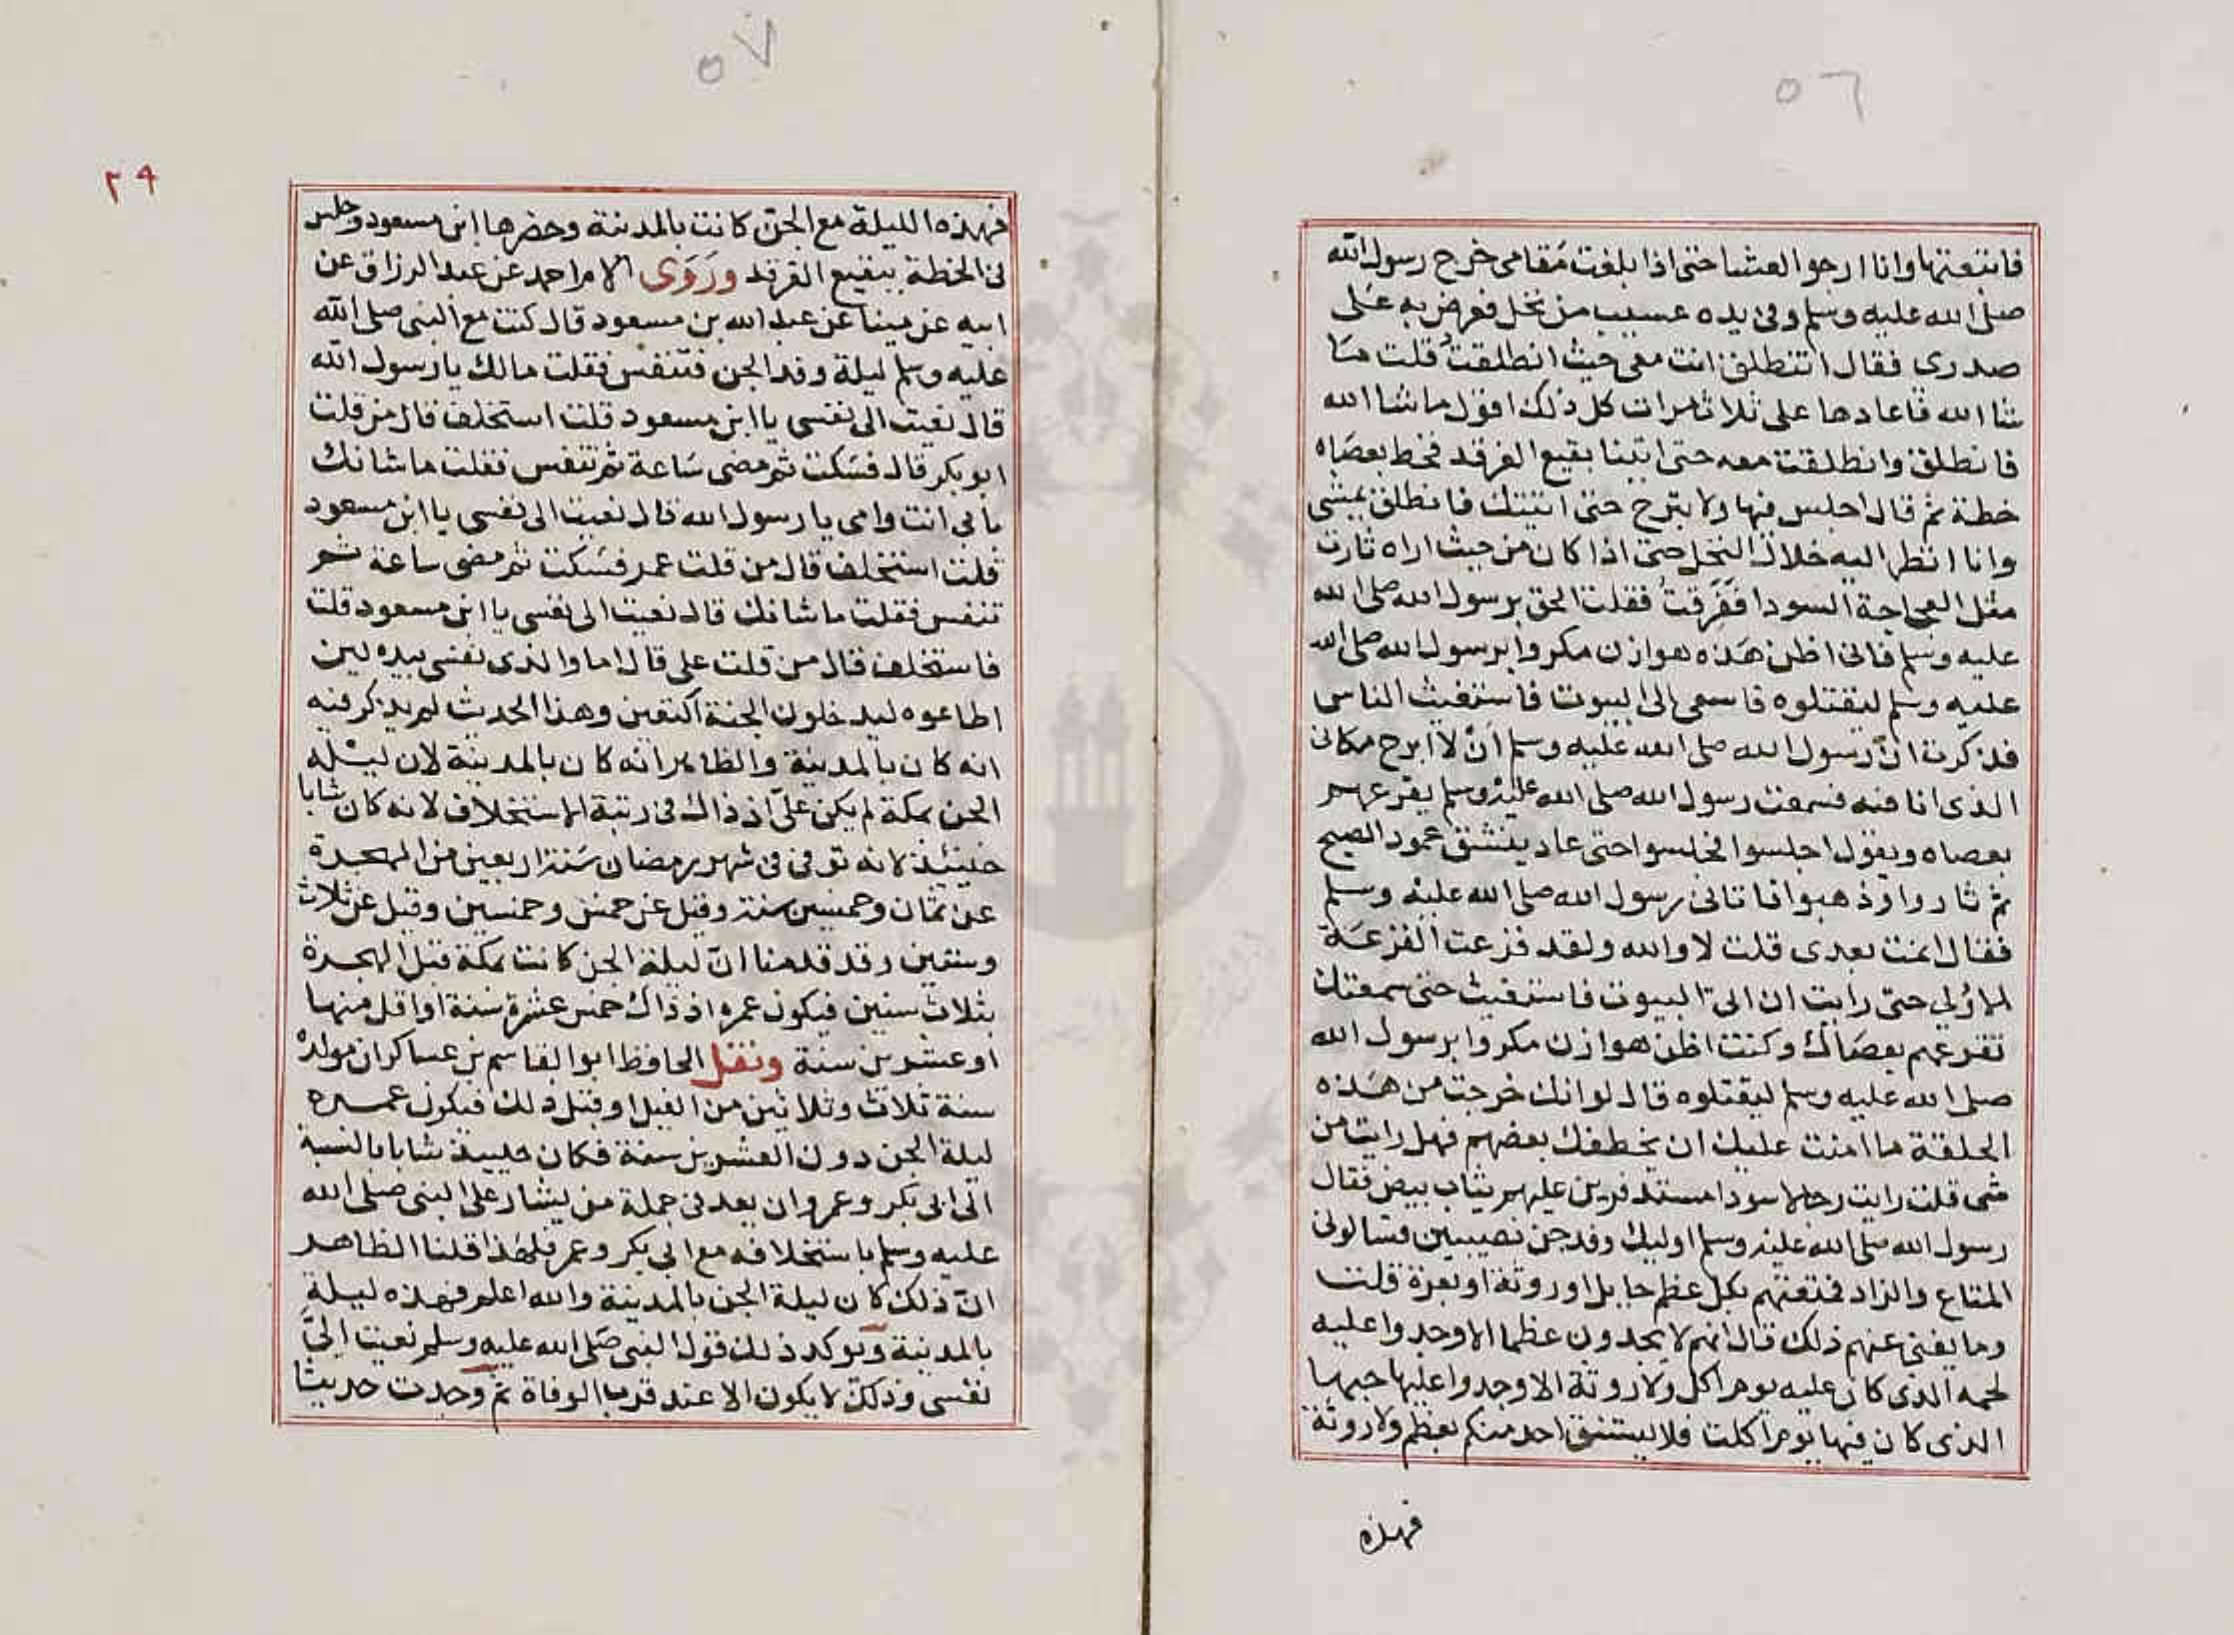 ٥٦
فاتبعتها وانا ارجو العشا حتى اذا بلغت مقامى خرج رسول الله
صلى الله عليه وسلم وفى يده عسيب من نخل فعرض به على
صدرى فقال اتنطلق انت معى حيث انطلقت قلت ما
شا الله فاعادها على ثلاث مرات كل ذلك اقول ما شا الله
فانطلق وانطلقت معه حتى اتينا بقيع الغرقد فخط بعصاه
خطة ثم قال اجلس فيها ولا تبرح حتى اتيتك فانطلق يمشى
وانا انظر اليه خلال النخل حتى اذا كان من حيث اراه ثارت
مثل العجاجة السودا ففرقت فقلت الحق برسول الله صلى الله
عليه وسلم فانى اظن هذه هوازن مكروا برسول الله صلى الله
عليه وسلم ليقتلوه فاسعى الى البيوت فاستغيث الناس
فذكرت ان رسول الله صلى الله عليه وسلم ان لا ابرح مكانى
الذى انا فيه فسمعت رسول الله صلى الله عليه وسلم يقرعهم
بعصاه ويقول اجلسوا فجلسوا حتى عاد ينشق عمود الصبح
ثم ثاروا وذهبوا فاتانى رسول الله صلى الله عليه وسلم
فقال انمت بعدى قلت لا والله ولقد فزعت الفزعة
الاولى حتى رايت ان اتى البيوت فاستغيث حتى سمعتك
تقرعهم بعصاك وكنت اظن هوازن مكروا برسول الله
صلى الله عليه وسلم ليقتلوه قال لو انك خرجت من هذه
الحلقة ما امنت عليك ان يخطفك بعضهم فهل رايت من
شى قلت رايت رجالا سودا مستذفرين عليهم بثياب بيض فقال
رسول الله صلى الله عليه وسلم اوليك وفد جن نصيبين فسالونى
المتاع والزاد فمتعتهم بكل عظم حايل او روثة او بعرة قلت
وما يغنى عنهم ذلك قال انهم لا يجدون عظما الا وجدوا عليه
لحمه الذى كان عليه يوم اكل ولا روثة الا وجدوا عليها حبها
الذى كان فيها يوم اكلت فلا يستنق احد منكم بعظم ولا روثة
فهذه
٥٧
٢٩
فهذه الليلة مع الجن كانت بالمدينة وحضرها ابن مسعود وجلس
فى الخطة ببقيع الغرقد وروى الامام احمد عن عبد الرزاق عن
ابيه عن مينا عن عبد الله بن مسعود قال كنت مع النبى صلى الله
عليه وسلم ليلة وفد الجن فتنفس فقلت مالك يا رسول الله
قال نعيت الى نفسى يا ابن مسعود قلت استخلف قال من قلت
ابو بكر قال فسكت ثم مضى ساعة ثم تنفس فقلت ما شانك
بابى انت وامى يا رسول الله قال نعيت الى نفسى يا ابن مسعود
قلت استخلف قال من قلت عمر فسكت ثم مضى ساعة ثم
تنفس فقلت ما شانك قال نعيت الى نفسى يا ابن مسعود قلت
فاستخلف قال من قلت على قال اما والذى نفسى بيده لين
اطاعوه ليدخلون الجنة اكتعين وهذا الحديث لم يذكر فيه
انه كان بالمدينة والظاهر انه كان بالمدينة لان ليلة
الجن بمكة لم يكن على اذ ذاك فى رتبة الاستخلاف لانه كان شابا
حينئذ لانه توفى فى شهر رمضان سنة اربعين من الهجرة
عن ثمان وخمسين سنة وقيل عن خمس وخمسين وقيل عن ثلاث
وستين وقد قدمنا ان ليلة الجن كانت بمكة قبل الهجرة
بثلاث سنين فيكون عمره اذ ذاك خمس عشرة سنة او اقل منها
او عشرين سنة ونقل الحافظ ابو القاسم بن عساكر ان مولده
سنة ثلاث وثلاثين من الفيل او قبل ذلك فيكون عمره
ليلة الجن دون العشرين سنة فكان حينيذ شابا بالنسبة
الى ابى بكر وعمر وان يعد فى جملة من يشار على النبى صلى الله
عليه وسلم باستخلافه مع ابى بكر وعمر فلهذا قلنا الظاهر
ان ذلك كان ليلة الجن بالمدينة والله اعلم فهذه ليلة
بالمدينة ويوكد ذلك قول النبى صلى الله عليه وسلم نعيت الىّ
نفسى وذلك لا يكون الا عند قرب الوفاة ثم وجدت حديثا